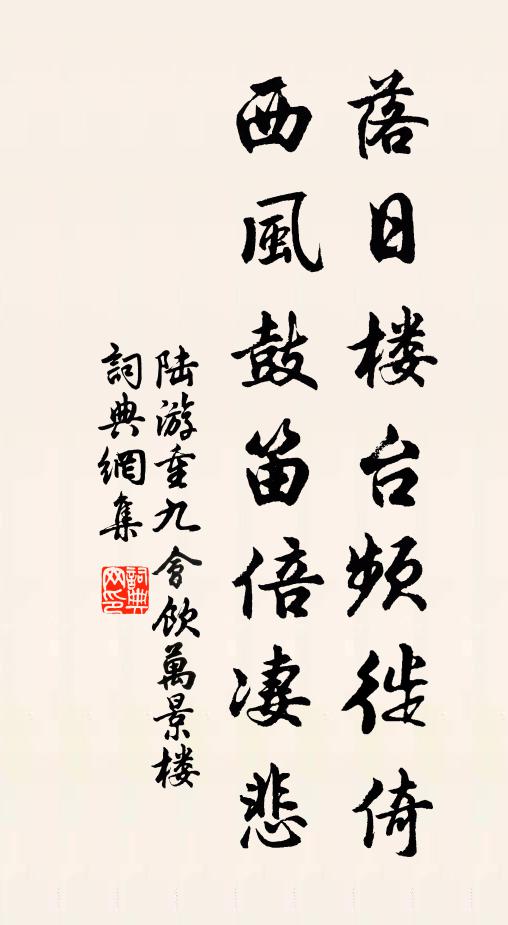 落日楼台频徙倚
西風鼓笛倍凄悲
陆游重九會飲萬景楼
詞典網集
詞典网印